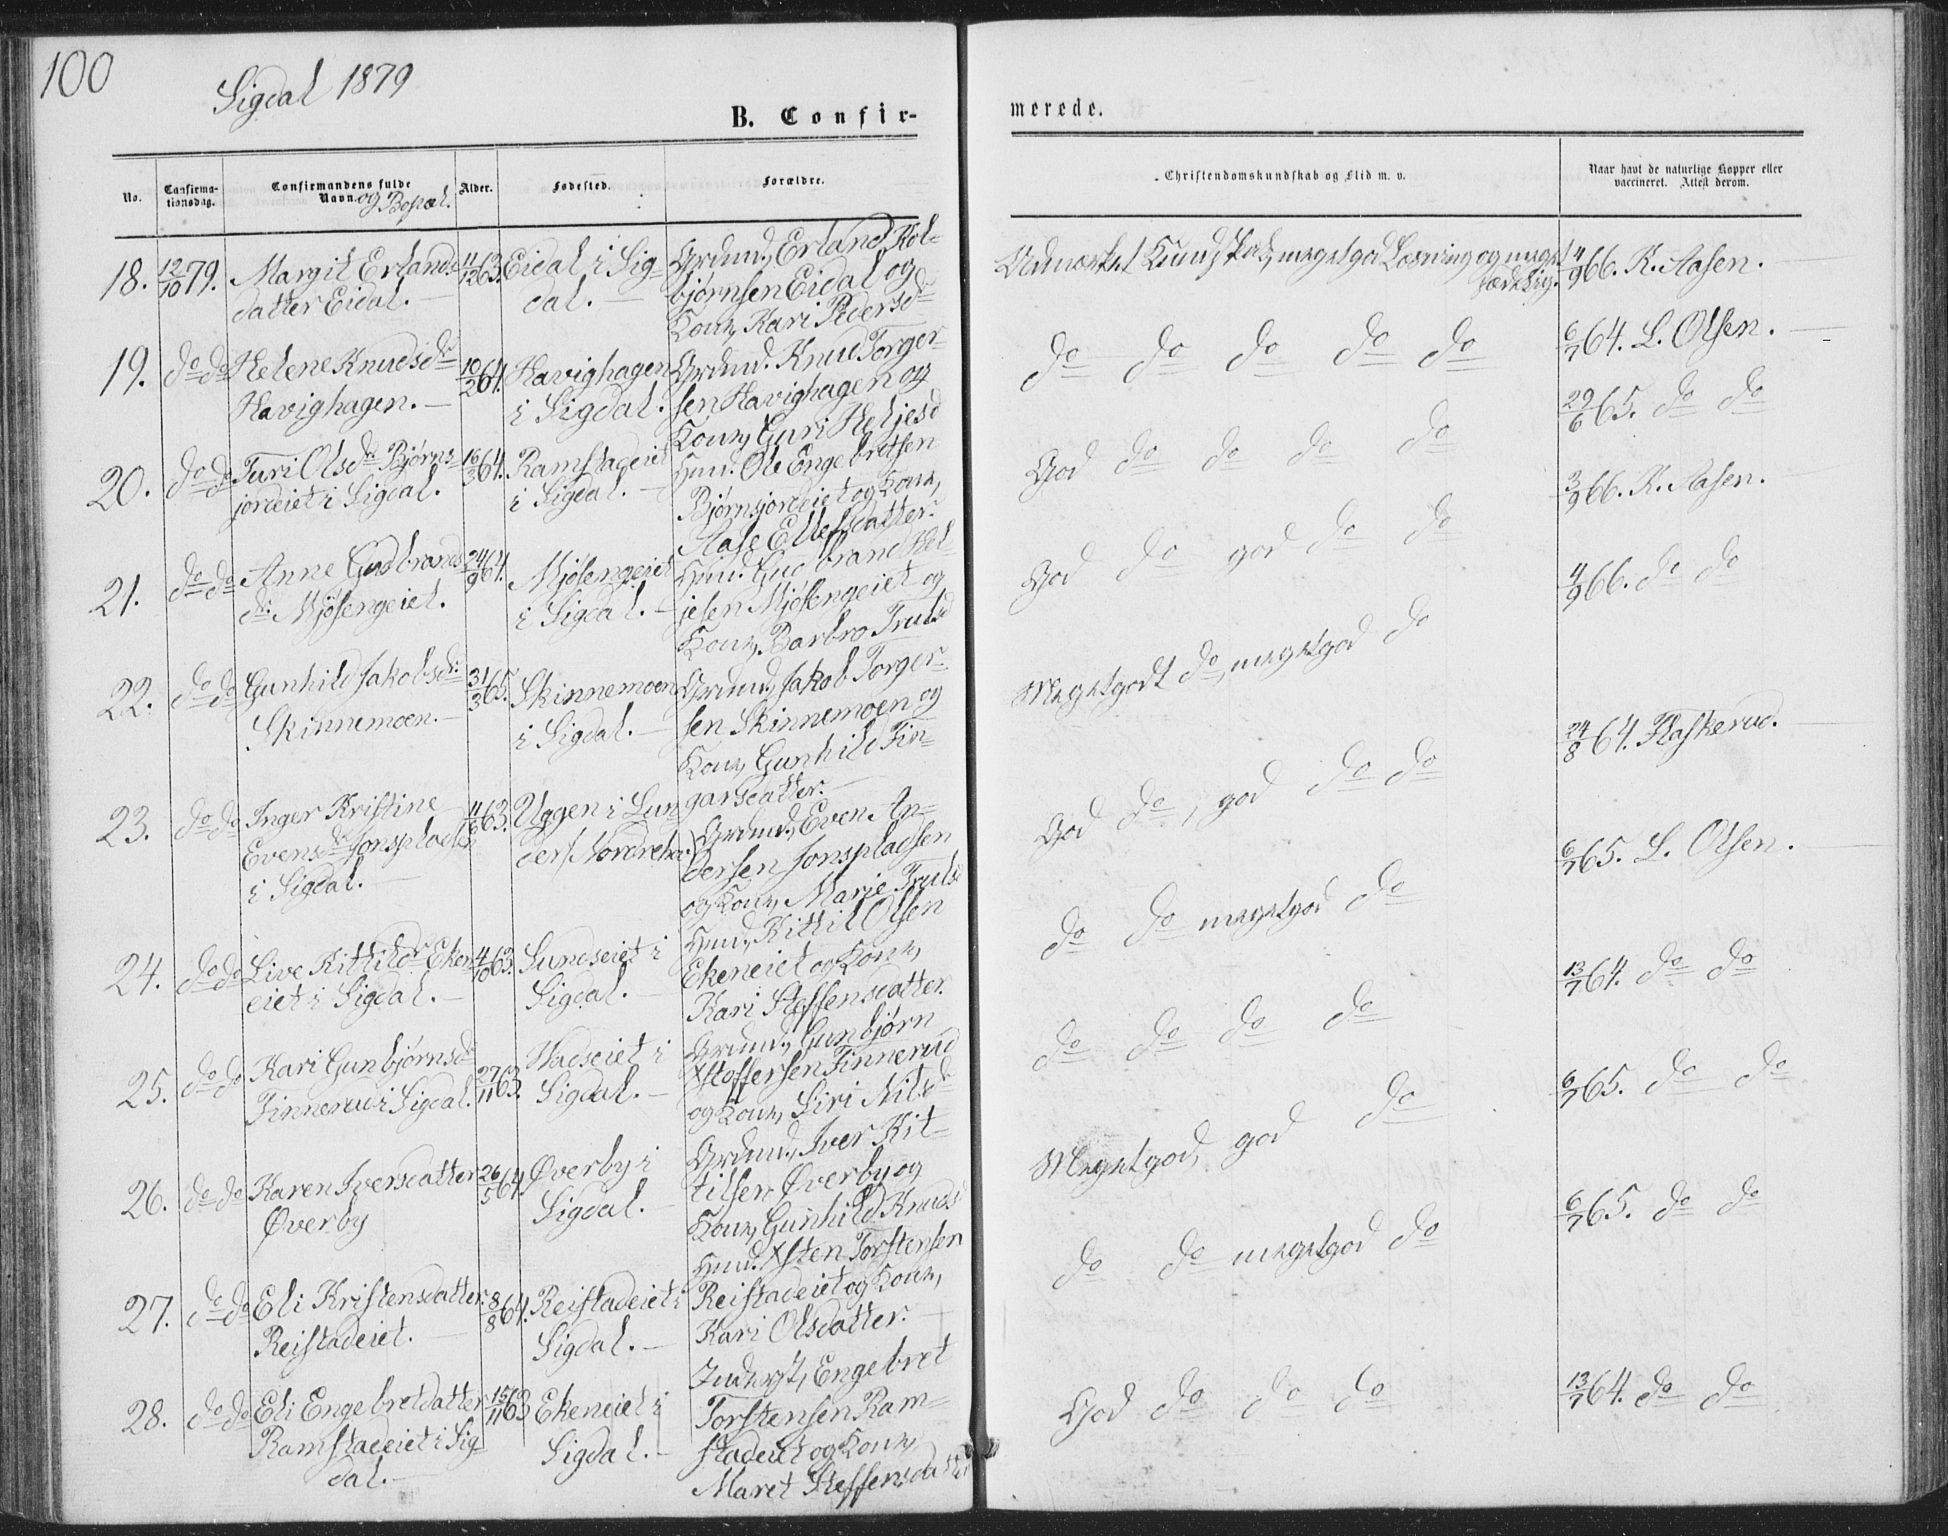 100
Sigdal 1879
B. Confir-
No.
Confirma-
tionsdag.
Confirmandens fulde
Navn og Bopæl.
Alder.
Fødested.
Forældre.
18. 12/10 79. Margit Erlands- 11/12 63. Eidal i Sig- Grdmd. Erland Kol-
datter Eidal. — dal. — bjørnsen Eidal og
Kone, Kari Pedersdr
19. do do Helene Knudsdr 10/2 64. Havighagen Grdmd. Knud Torger-
Havighagen. — i Sigdal. sen Havighagen og
Kone, Guri Heljesd
20. do do Turi Olsdr Bjørns- 16/3 64. Ramstadeiet Hmd. Ole Engebretsen
jordeiet i Sigdal. i Sigdal. — Bjørnsjordeiet og Kone,
Aase Ellefsdatter.
21. do do Anne Gudbrands 24/9 64. Mjøsengeiet Hmd. Gudbrand Hel-
dr. Mjøsengeiet. i Sigdal. — jesen Mjøsengeiet og
Kone, Barbro Trulsd
22. do do Gunhild Jakobsdr: 31/3 65. Skinnemoen Grdmd. Jakob Torger-
Skinnemoen. — i Sigdal. — sen Skinnemoen og
Kone, Gunhild Fin-
garsdatter. —
23. do do Inger Kristine 4/6 63. Uggen i Lun- Grdmd., Even An-
Evensdr Jonspladsen der/Nordrehov) dersen Jonspladsen
i Sigdal. — og Kone, Marie Trulsd
24. do do Live Kittilsdr Eken 4/10 63. Sundseiet i Hmd., Kittil Olsen
eiet i Sigdal. — Sigdal. — Ekeneiet og Kone,
Kari Steffensdatter.
25. do do Kari Gunbjørnsd 27/11 63. Hadseiet i Grdmd., Gunbjørn
Finnerud i Sigdal. Sigdal. — Xstoffersen Finnerud
og Kone, Siri Nilsdr
26. do do Karen Iversdatter 26/5 64. Øverby i Grdmd., Iver Kit-
Øverby Sigdal. — tilsen Øverby og
Kone, Gunhild Knudsd
27. do do Eli Kristensdatter 8/8 64. Reistadeiet i Hmd. Xsten Torstensen
Reistadeiet. — Sigdal. — Reistadeiet og Kone,
Kari Olsdatter. —
28. do do Eli Engebretdatter 15/11 63 Ekeneiet i Inderst, Engebret
Ramstadeiet i Sig- Sigdal. — Torstensen Ram-
dal. — stadeiet og Kone,
Maret Steffensdatter
merede.
Christendomskundskab og Flid m. v.
Naar havt de naturlige Kopper eller
vaccineret. Attest derom.
Udmærket Kundskab, meget god Læsning og meget
sædelig. 4/9 66. K. Aasen.
do do do do do 6/7 64. L. Olsen. —
God do do do do 29/6 65. do do
God do god do do 3/9 66. K. Aasen. —
Megetgodt do, megetgod do 4/9 66. do do
God do, god do do 24/8 64. Flaskerud. —
do do megetgod do 6/7 65. L. Olsen. —
do do do do 13/7 64. do do
Megetgod, god do 6/7 65. do do
do do megetgod do 6/7 65. do do
God do do do 13/7 64. do do